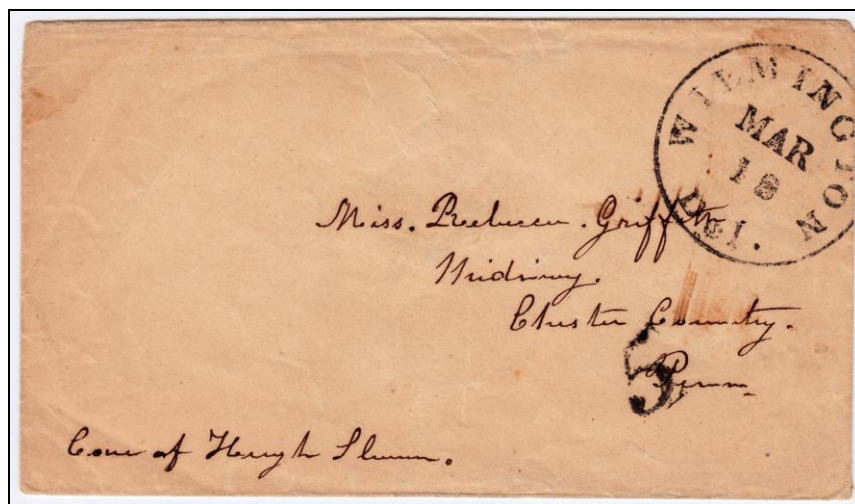 WILMINGTON Del.
MAR
18
Miss. Rebecca. Griffith
Midway.
Chester County.
5
Penn
Care of Hugh